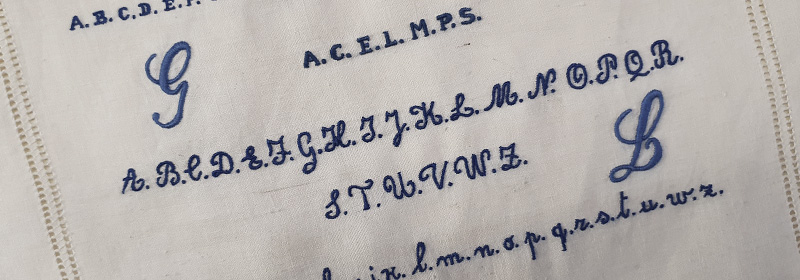 A.B.C.D.E.F.
A.C.E.L.M.P.S.
G
A.B.C.D.E.F.G.H.I.J.K.L.M.N.O.P.Q.R.
L
S.T.U.V.W.Z.
k.l.m.n.o.p.q.r.s.t.u.w.z.